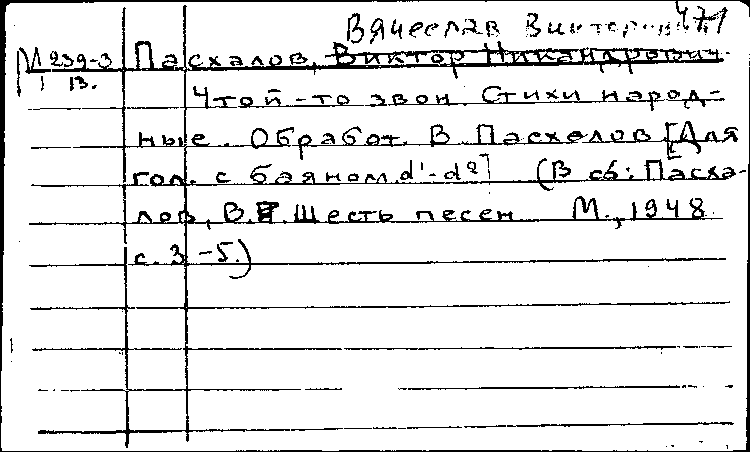 471
Вячеслав Викторович
М 239-3 Пасхалов, Виктор Никандрович.
13.
Чтой-то звон. Стихи народ-
ные. Обработ. В. Пасхалов [Для
гол. с баяном. d'-d²] (В сб: Пасха-
лов, В. Шесть песен М., 1948
с. 3-5.)